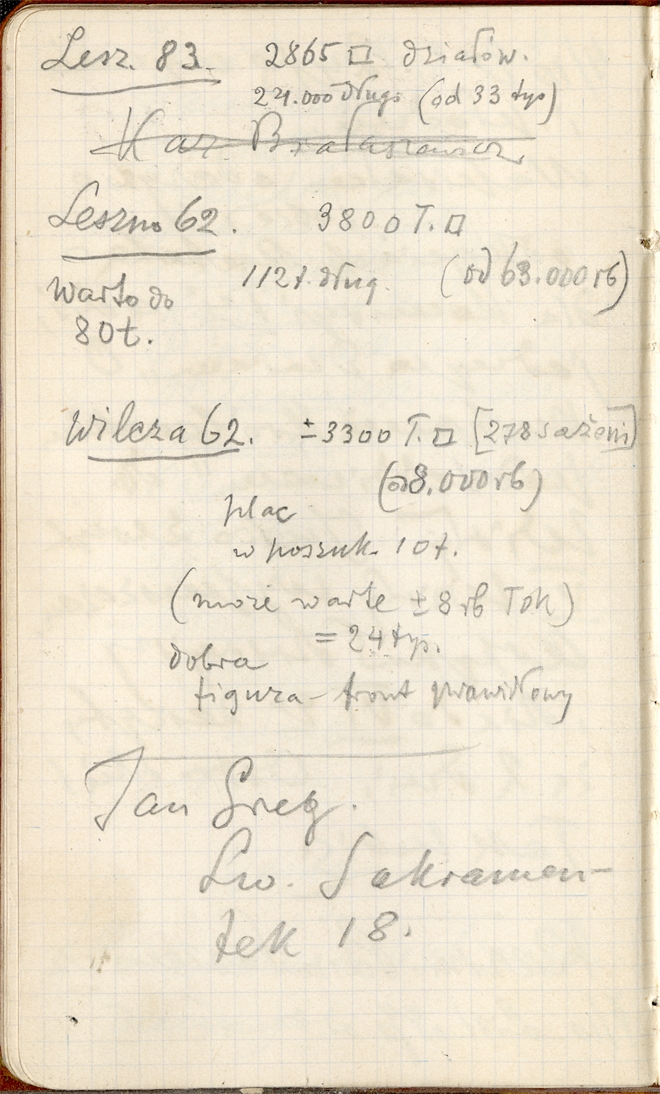 Lesz. 83. 2865 □ działów.
24.000 długo (od 33 tys)
Kaz
Leszno 62. 3800 T. □
112t. dług. (od 63.000 rb)
Warto do
80t.
Wilcza 62. ±3300 T. □ [278 sażeni]
(od 8.000 rb)
plac
w poszuk. 10t.
(może warte ±8 rb Tok)
= 24 tys.
dobra
figura – front prawidłowy
Jan Greg.
Św. Sakramen-
tek 18.